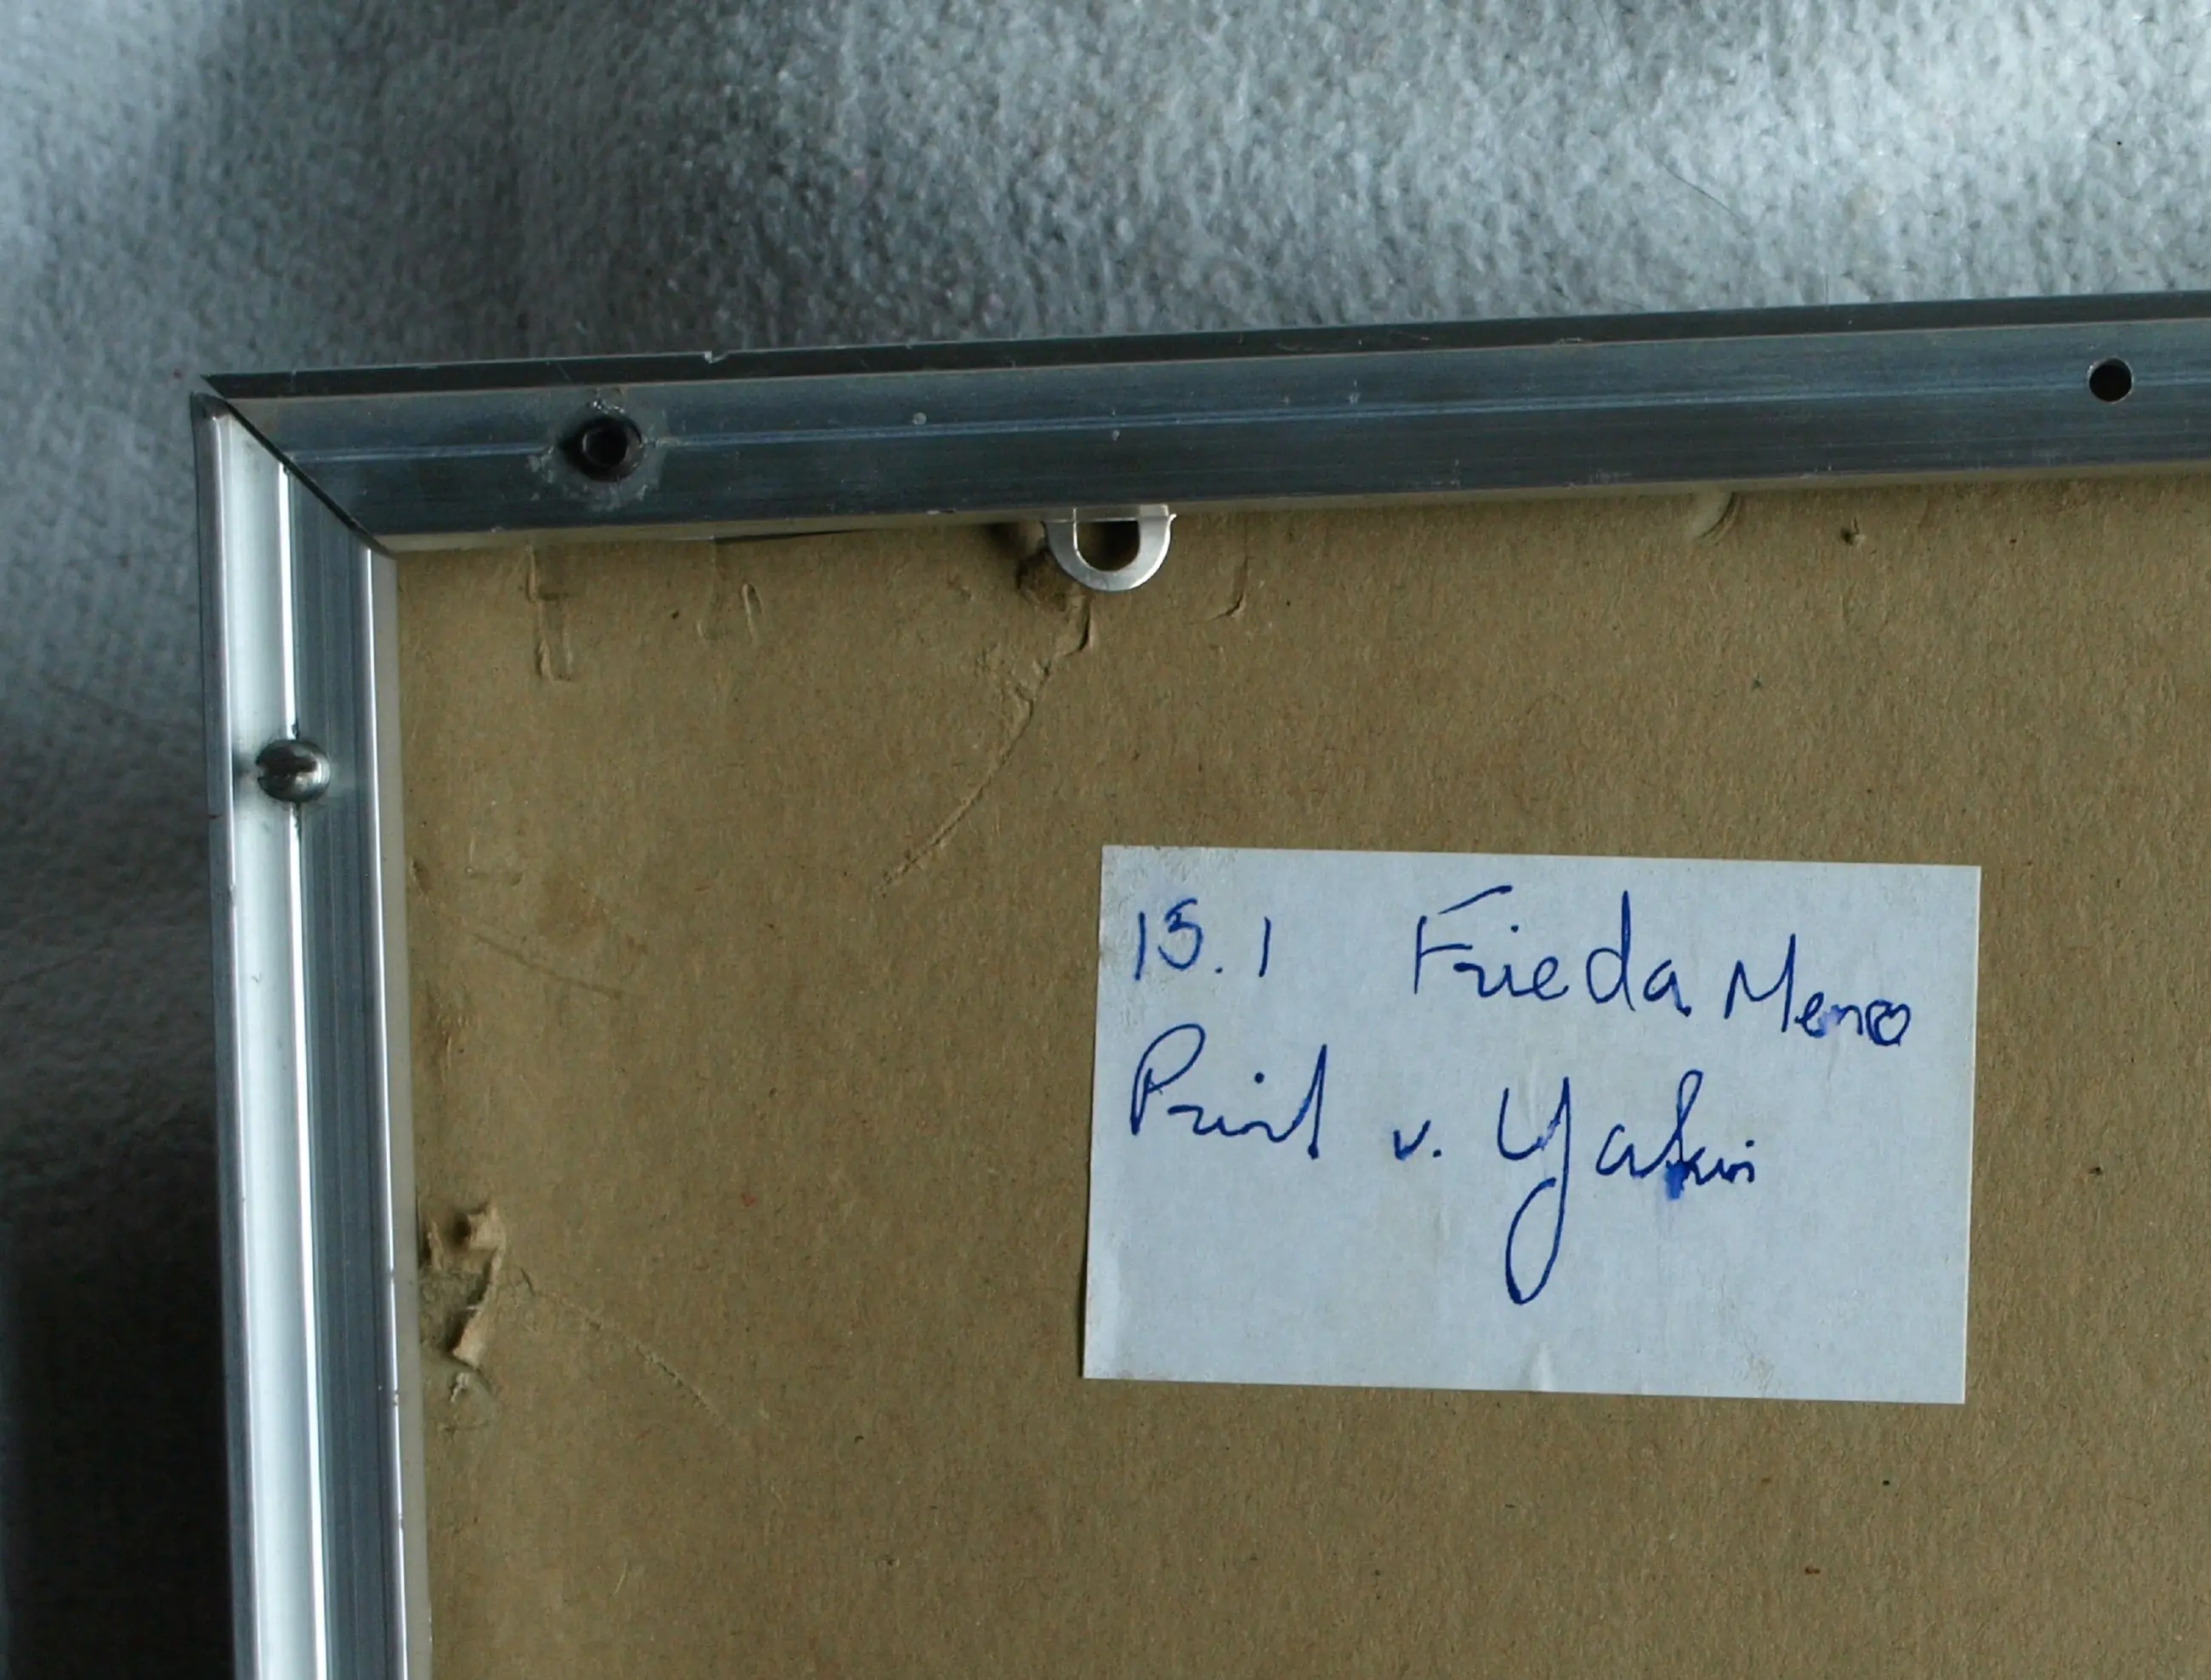 15.1 Frieda Meno
Print v. Yakin